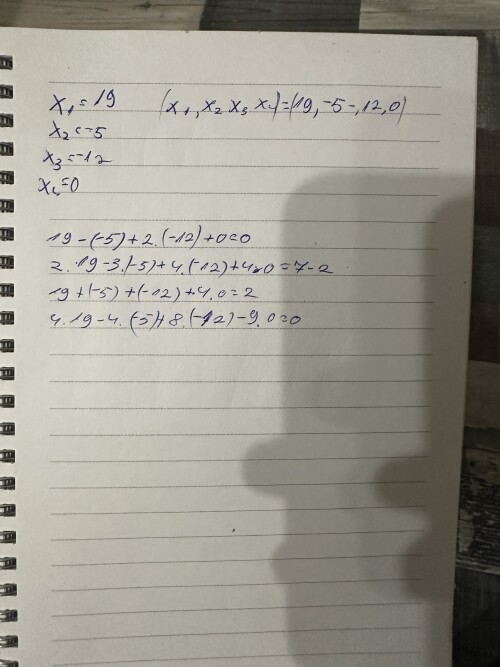 x₁ = 19 (x₁, x₂ x₃ x₄) = (19, -5 -, 12, 0)
x₂ = -5
x₃ = -12
x₄ = 0
19 - (-5) + 2. (-12) + 0 = 0
2. 19 - 3. (-5) + 4. (-12) + 4.0 = 7 - 2
19 + (-5) + (-12) + 4. 0 = 2
4. 19 - 4. (-5) + 8. (-12) - 9. 0 = 0